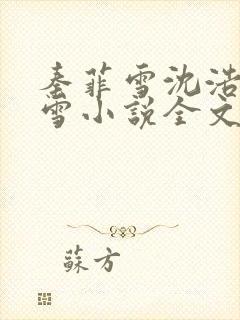 秦菲雪沈浩
雪小说全文
蘇方